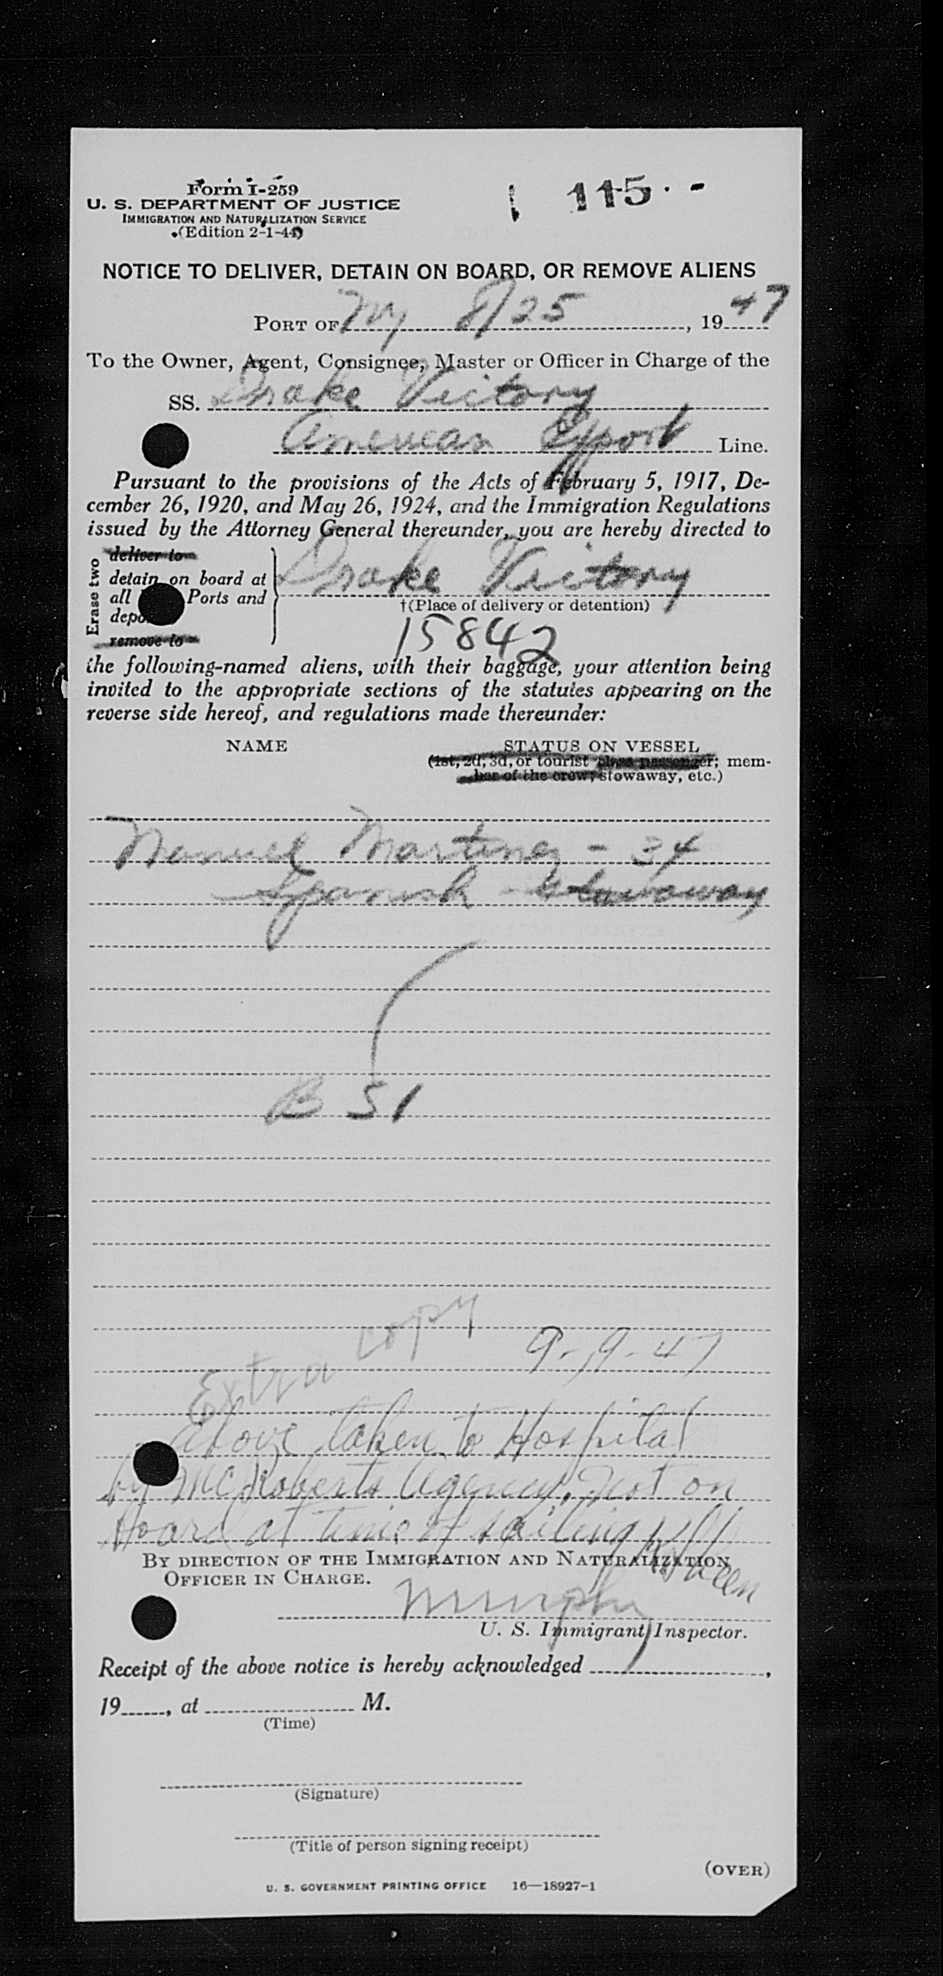 Form I-259
U. S. DEPARTMENT OF JUSTICE
IMMIGRATION AND NATURALIZATION SERVICE
(Edition 2-1-44)
115
NOTICE TO DELIVER, DETAIN ON BOARD, OR REMOVE ALIENS
PORT OF NY 8/25, 1947
To the Owner, Agent, Consignee, Master or Officer in Charge of the
SS. Drake Victory
American Export Line.
Pursuant to the provisions of the Acts of February 5, 1917, De-
cember 26, 1920, and May 26, 1924, and the Immigration Regulations
issued by the Attorney General thereunder, you are hereby directed to
Erase two
deliver to
detain on board at
all Ports and
remove to
Drake Victory
†(Place of delivery or detention)
15842
the following-named aliens, with their baggage, your attention being
invited to the appropriate sections of the statutes appearing on the
reverse side hereof, and regulations made thereunder:
NAME STATUS ON VESSEL
(1st, 2d, 3d, or tourist class passenger; mem-
ber of the crew; stowaway, etc.)
Manuel Martinez - 34
Spanish - Stowaway
B 51
Extra copy
9-19-47
above taken to Hospital
by McRoberts Agency. Not on
Board at time of sailing
BY DIRECTION OF THE IMMIGRATION AND NATURALIZATION
OFFICER IN CHARGE.
Murphy
U. S. Immigrant Inspector.
Receipt of the above notice is hereby acknowledged ,
19 , at M.
(Time)
(Signature)
(Title of person signing receipt)
(OVER)
U. S. GOVERNMENT PRINTING OFFICE 16—18927-1